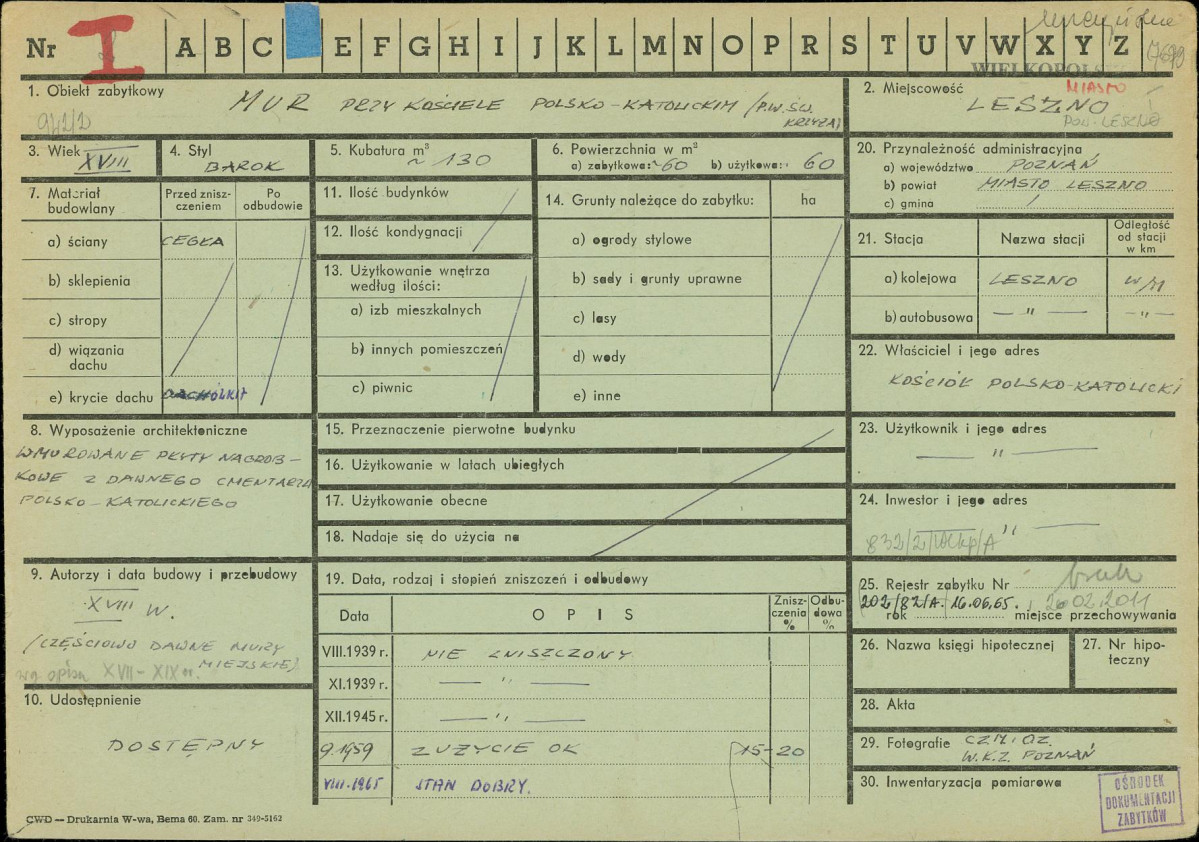 Nr I A B C E F G H I J K L M N O P R S T U V W X Y Z
WIELKOPOLS
1. Obiekt zabytkowy
MUR PRZY KOŚCIELE POLSKO-KATOLICKIM /P.W. ŚW. KRZYŻA/
942/2
2. Miejscowość
MIASTO
LESZNO
POW. LESZNO
3. Wiek XVIII
4. Styl BAROK
5. Kubatura m³ ~ 130
6. Powierzchnia w m²
a) zabytkowa: ~60 b) użytkowa: 60
20. Przynależność administracyjna
a) województwo POZNAŃ
b) powiat MIASTO LESZNO
c) gmina /
7. Materiał budowlany
Przed zniszczeniem
Po odbudowie
a) ściany CEGŁA
b) sklepienia
c) stropy
d) wiązania dachu
e) krycie dachu DACHÓWKA
11. Ilość budynków
12. Ilość kondygnacji
13. Użytkowanie wnętrza
według ilości:
a) izb mieszkalnych
b) innych pomieszczeń
c) piwnic
14. Grunty należące do zabytku:
ha
a) ogrody stylowe
b) sady i grunty uprawne
c) lasy
d) wody
e) inne
21. Stacja
Nazwa stacji
Odległość
od stacji
w km
a) kolejowa LESZNO W/M
b) autobusowa — " — — " —
22. Właściciel i jego adres
KOŚCIÓŁ POLSKO-KATOLICKI
8. Wyposażenie architektoniczne
WMUROWANE PŁYTY NAGROB-
KOWE Z DAWNEGO CMENTARZA
POLSKO-KATOLICKIEGO
15. Przeznaczenie pierwotne budynku
16. Użytkowanie w latach ubiegłych
17. Użytkowanie obecne
18. Nadaje się do użycia na
23. Użytkownik i jego adres
— " —
24. Inwestor i jego adres
— " —
832/2/Wlkp/A
9. Autorzy i data budowy i przebudowy
XVIII W.
/CZĘŚCIOWO DAWNE MURY
MIEJSKIE/
XVII-XIX w.
10. Udostępnienie
DOSTĘPNY
19. Data, rodzaj i stopień zniszczeń i odbudowy
Data
OPIS
Zniszczenia %
Odbudowa %
VIII.1939 r. NIE ZNISZCZONY
XI.1939 r. — " —
XII.1945 r. — " —
9.1959 ZUŻYCIE OK 15-20
VIII.1965 STAN DOBRY.
25. Rejestr zabytku Nr brak
202/82/A. 16.06.65. , 26.02.2011
rok miejsce przechowywania
26. Nazwa księgi hipotecznej
27. Nr hipo-
teczny
28. Akta
29. Fotografie CZM. OZ.
W.K.Z. POZNAŃ
30. Inwentaryzacja pomiarowa
OŚRODEK
DOKUMENTACJI
ZABYTKÓW
CWD — Drukarnia W-wa, Bema 60. Zam. nr 349-5162